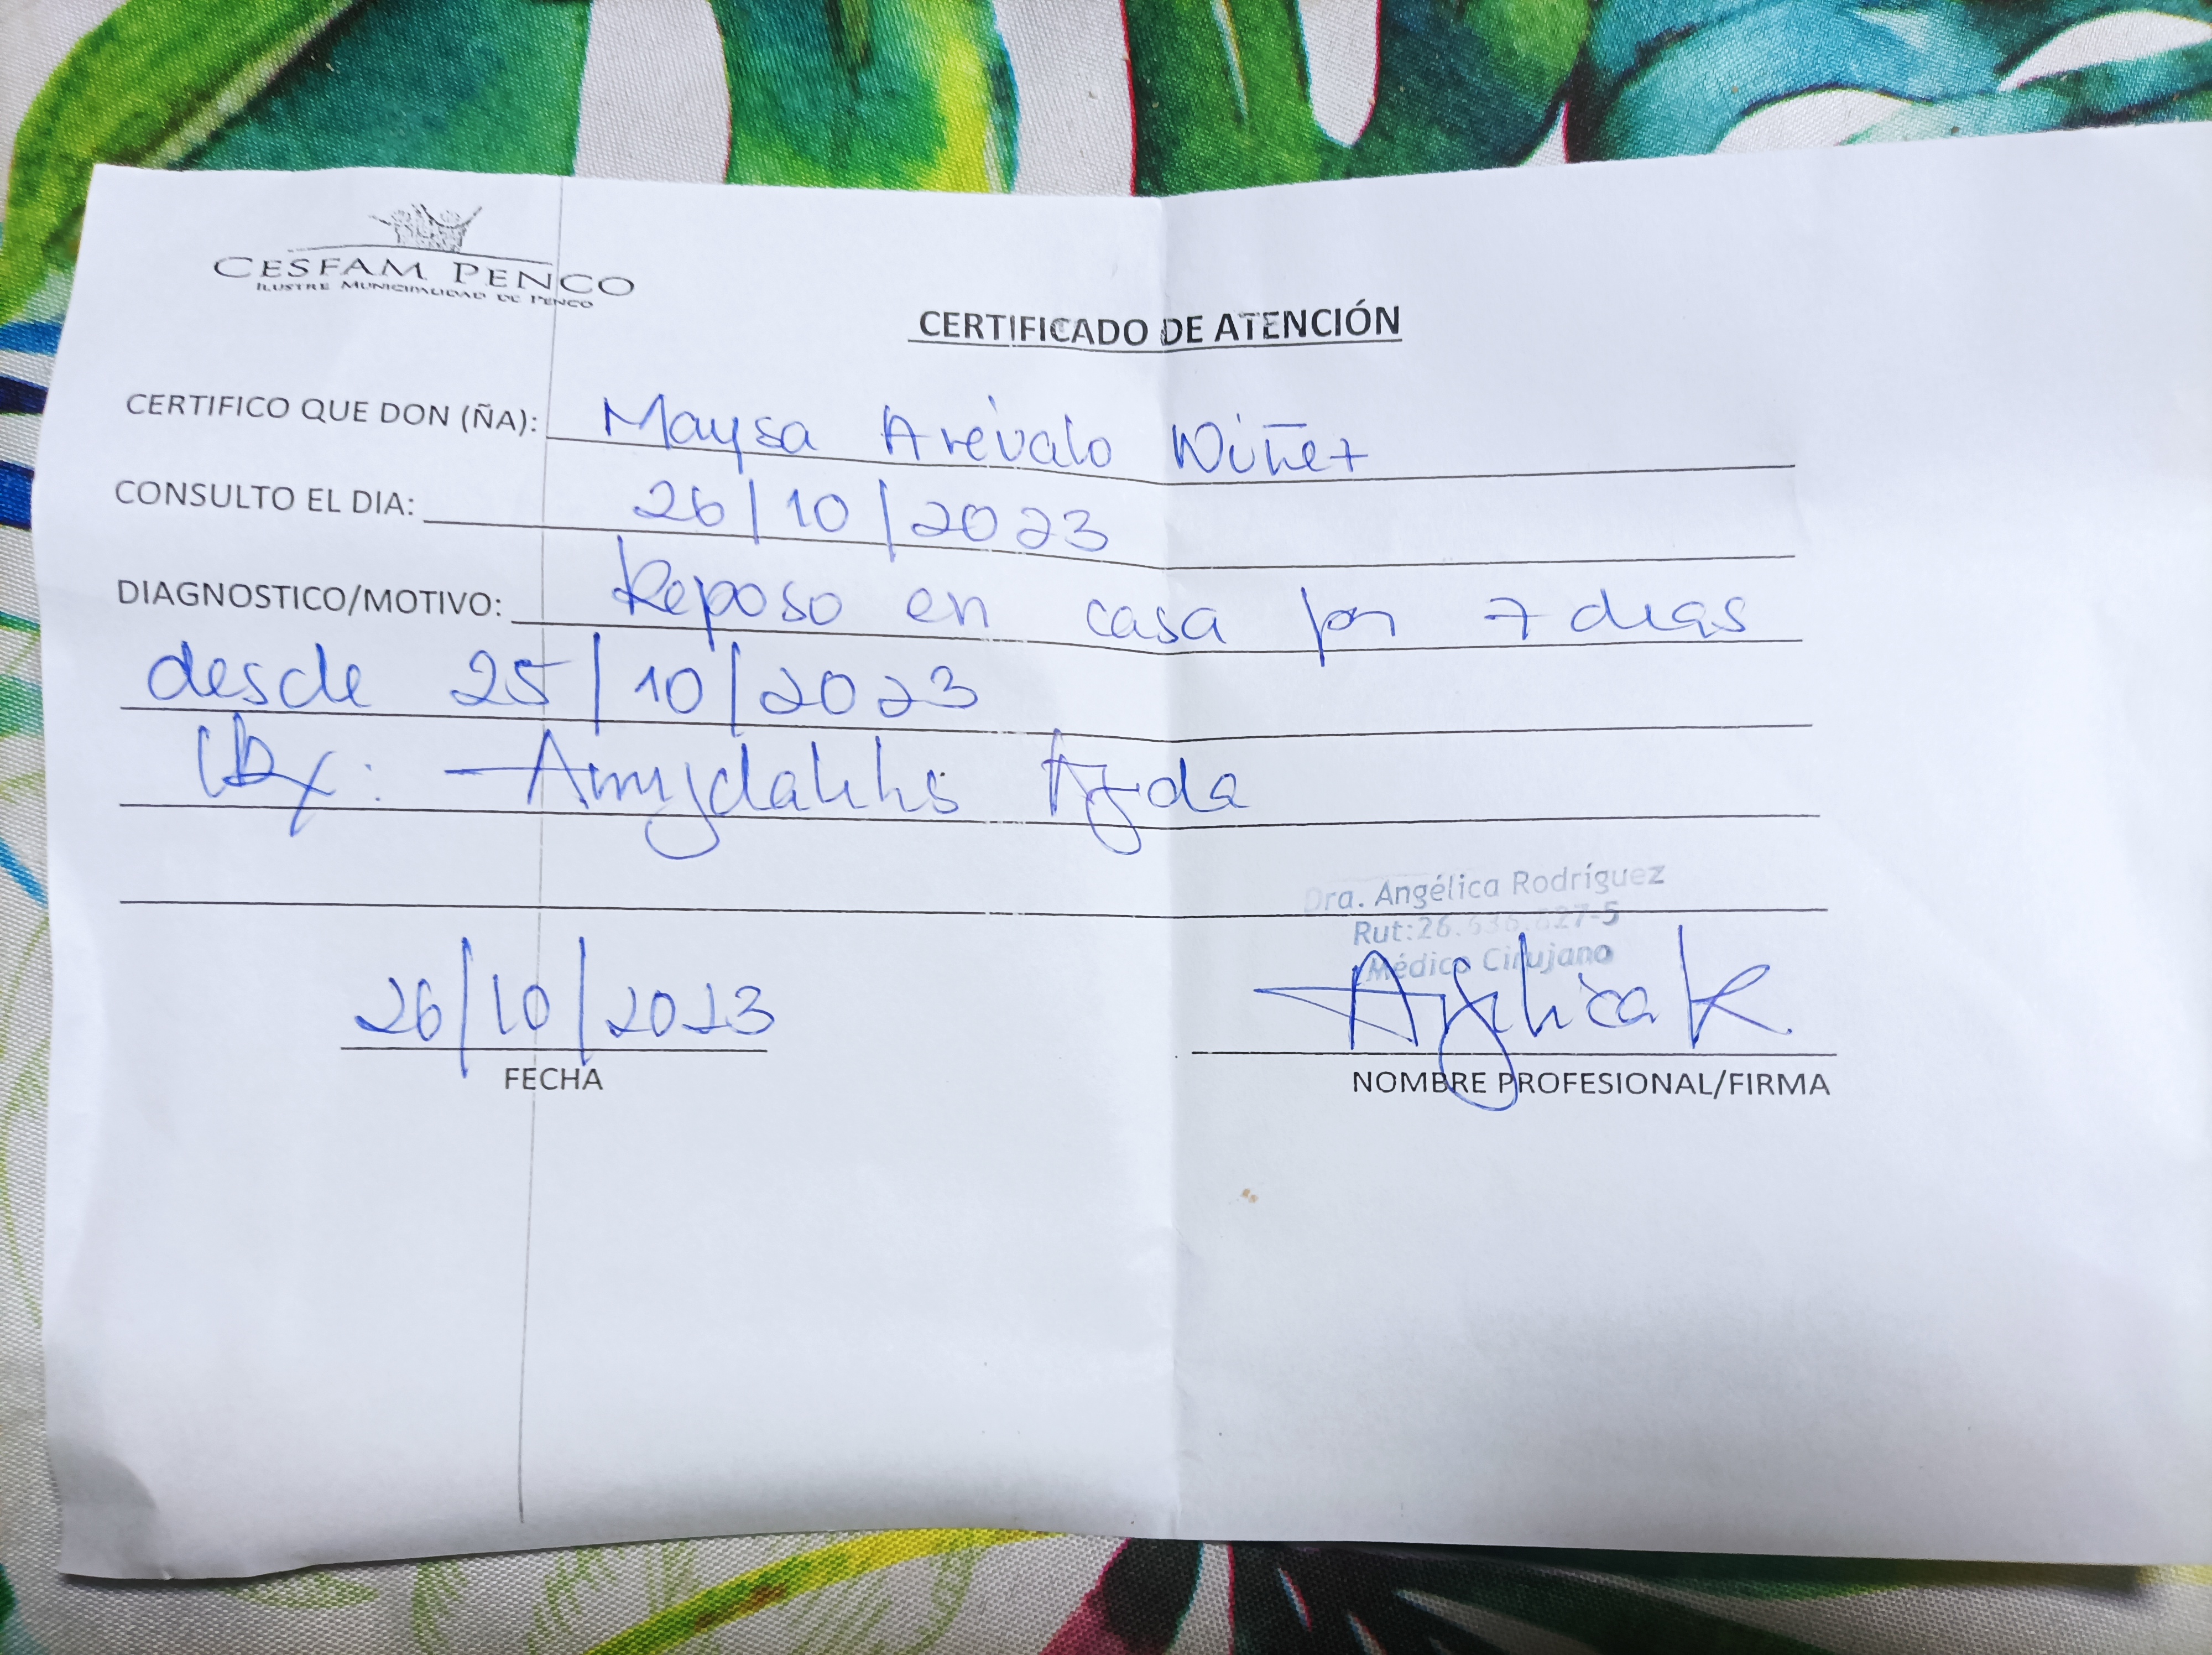 CESFAM PENCO
ILUSTRE MUNICIPALIDAD DE PENCO
CERTIFICADO DE ATENCIÓN
CERTIFICO QUE DON (ÑA): Maysa Arévalo
CONSULTO EL DIA: 26/10/2023
DIAGNOSTICO/MOTIVO: Reposo en casa por 7 dias
desde 25/10/2023
Dx: Amygdalitis
Dra. Angélica Rodríguez
Médico Cirujano
26/10/2023
Angélica R
FECHA
NOMBRE PROFESIONAL/FIRMA